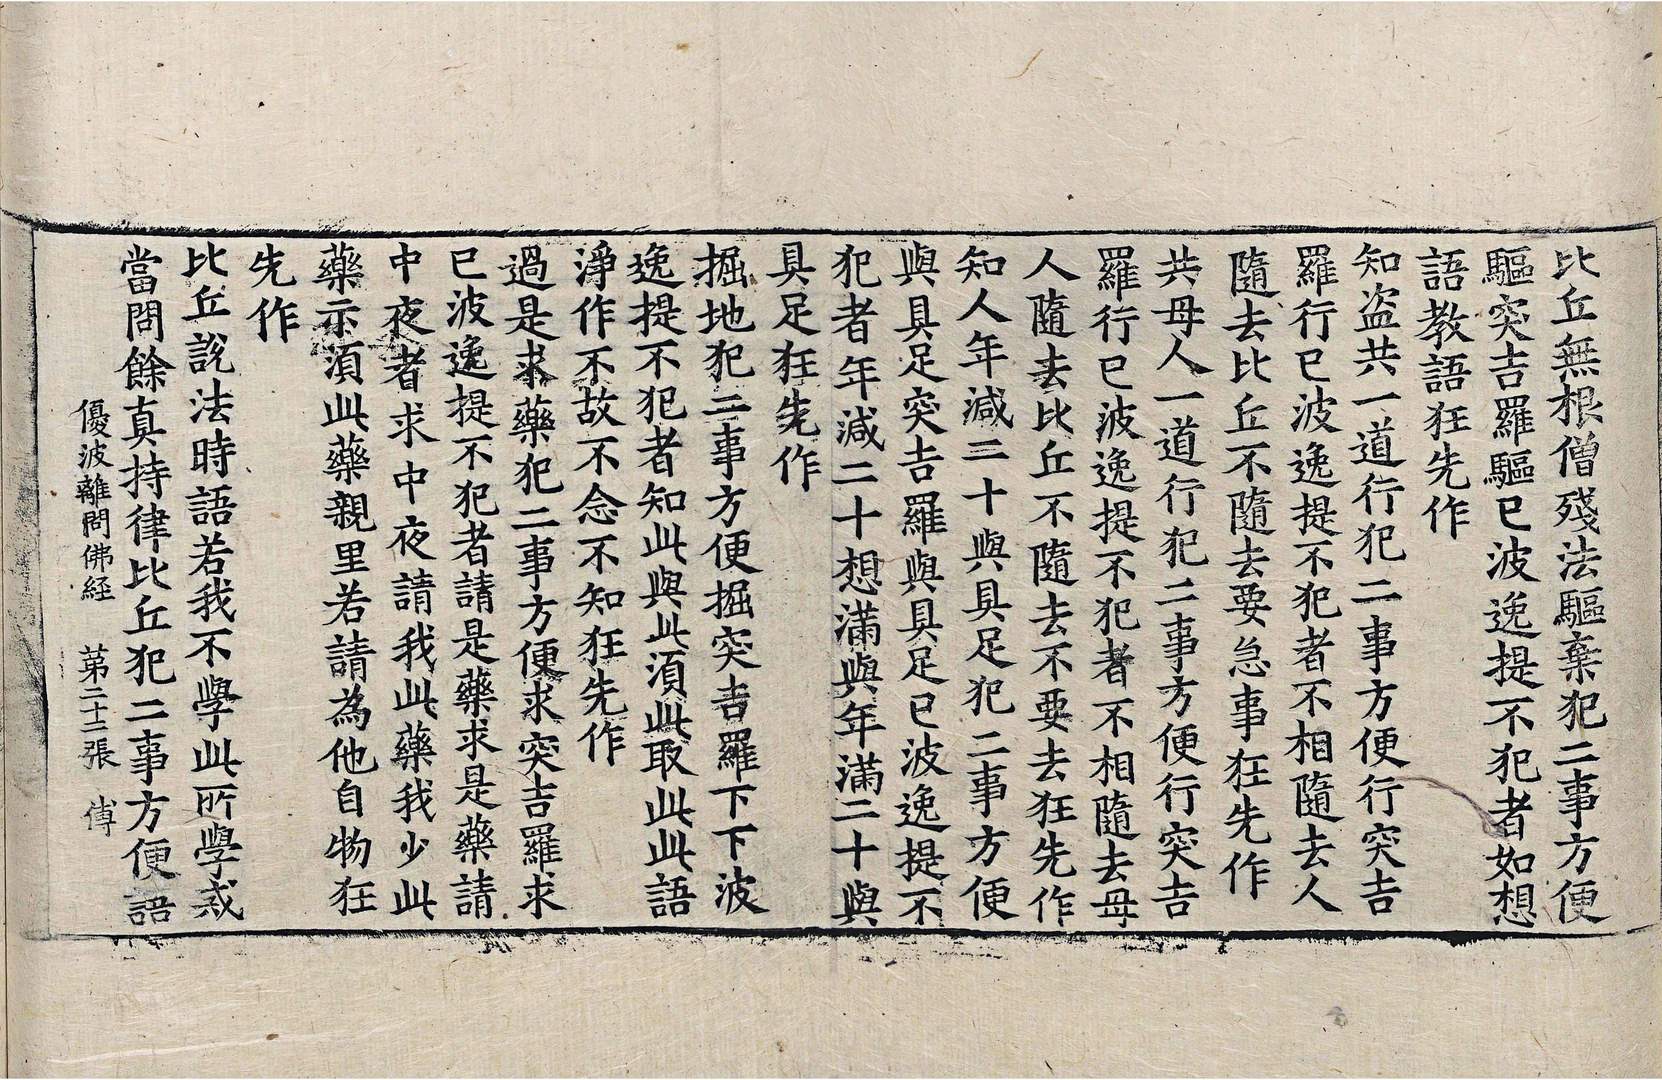 比丘無根僧殘法驅棄犯二事方便
驅突吉羅驅已波逸提不犯者如想
語教語狂先作
知盗共一道行犯二事方便行突吉
羅行已波逸提不犯者不相隨去人
隨去比丘不隨去要急事狂先作
共母人一道行犯二事方便行突吉
羅行已波逸提不犯者不相隨去母
人隨去比丘不隨去不要去狂先作
知人年減三十與具足犯二事方便
與具足突吉羅與具足已波逸提不
犯者年減二十想滿與年滿二十與
具足狂先作
掘地犯二事方便掘突吉羅下下波
逸提不犯者知此與此湏此取此此語
淨作不故不念不知狂先作
過是求藥犯二事方便求突吉羅求
已波逸提不犯者請是藥求是藥請
中夜者求中夜請我此藥我少此
藥示湏此藥親里若請為他自物狂
先作
比丘說法時語若我不學此所學戒
當問餘真持律比丘犯二事方便語
優波離問佛経　第二十二張　傅